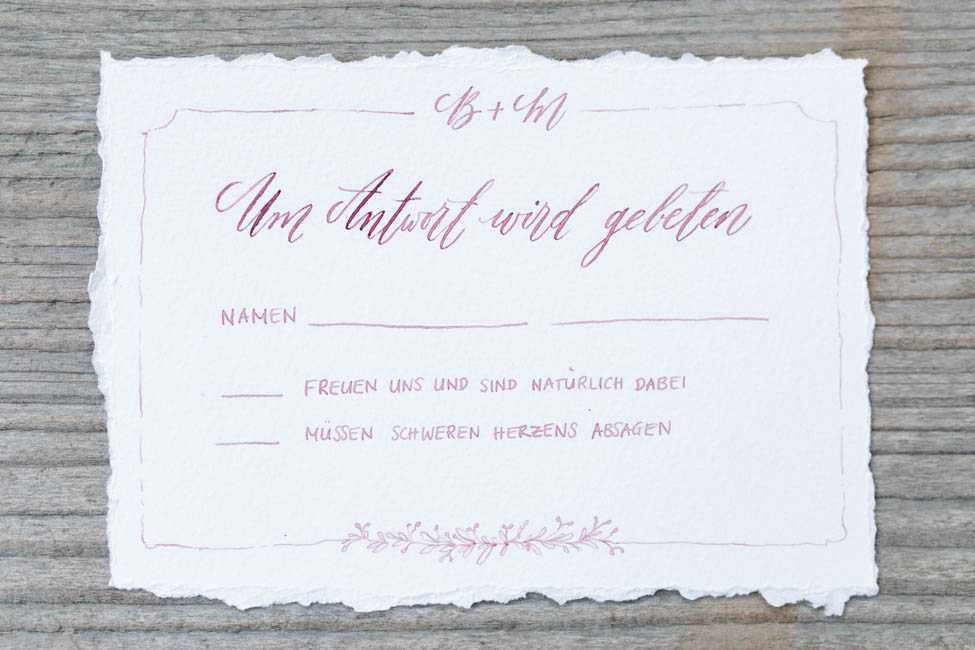 B + M
Um Antwort wird gebeten
NAMEN ____ ____
____ FREUEN UNS UND SIND NATÜRLICH DABEI
____ MÜSSEN SCHWEREN HERZENS ABSAGEN